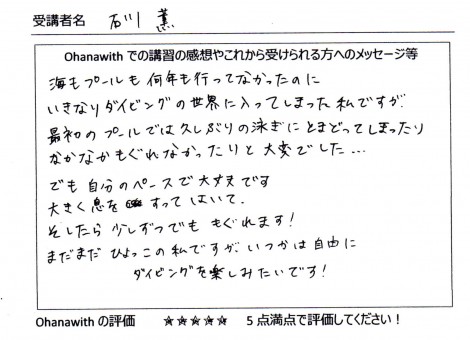 受講者名 石川 薫
Ohanawith での講習の感想やこれから受けられる方へのメッセージ等
海もプールも何年も行ってなかったのに
いきなりダイビングの世界に入ってしまった私ですが、
最初のプールでは久しぶりの泳ぎにとまどってしまったり
なかなかもぐれなかったりと大変でした…
でも自分のペースで大丈夫です
大きく息を すって はいて、
そしたら少しずつでも もぐれます!
まだまだ ひよっこの私ですが、いつかは自由に
ダイビングを楽しみたいです!
Ohanawith の評価 ☆☆☆☆☆ 5点満点で評価してください!